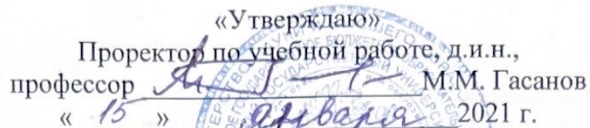 «Утверждаю»
Проректор по учебной работе, д.и.н.,
профессор М.М. Гасанов
« 15 » января 2021 г.